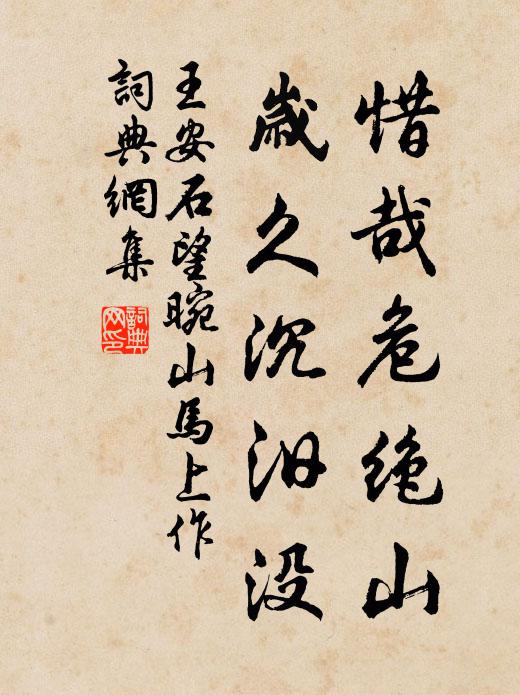 惜哉危绝山
歲久沉汨没
王安石望晥山馬上作
詞典網集
詞典网印